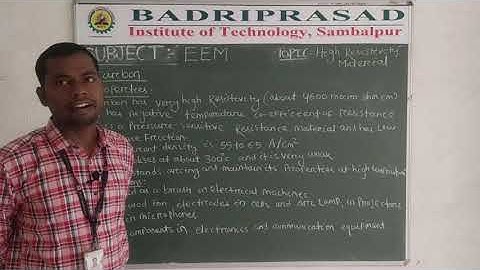 BADRIPRASAD
Institute of Technology, Sambalpur
SUBJECT:- EEM
TOPIC:- High Resistivity Material
carbon
has very high Resistivity (about 4600 macro ohm cm)
has negative temperature co-efficient of resistance
is a Pressure-sensitive Resistance Material and has Low
Friction.
density is 55 to 65 A/cm²
at about 300°c and it is very weak
arcing and maintain its Properties at high temperature
as a brush in electrical machines
electrodes in and arc Lamp, in Projectors
in microphones
components in electronics and communication equipment